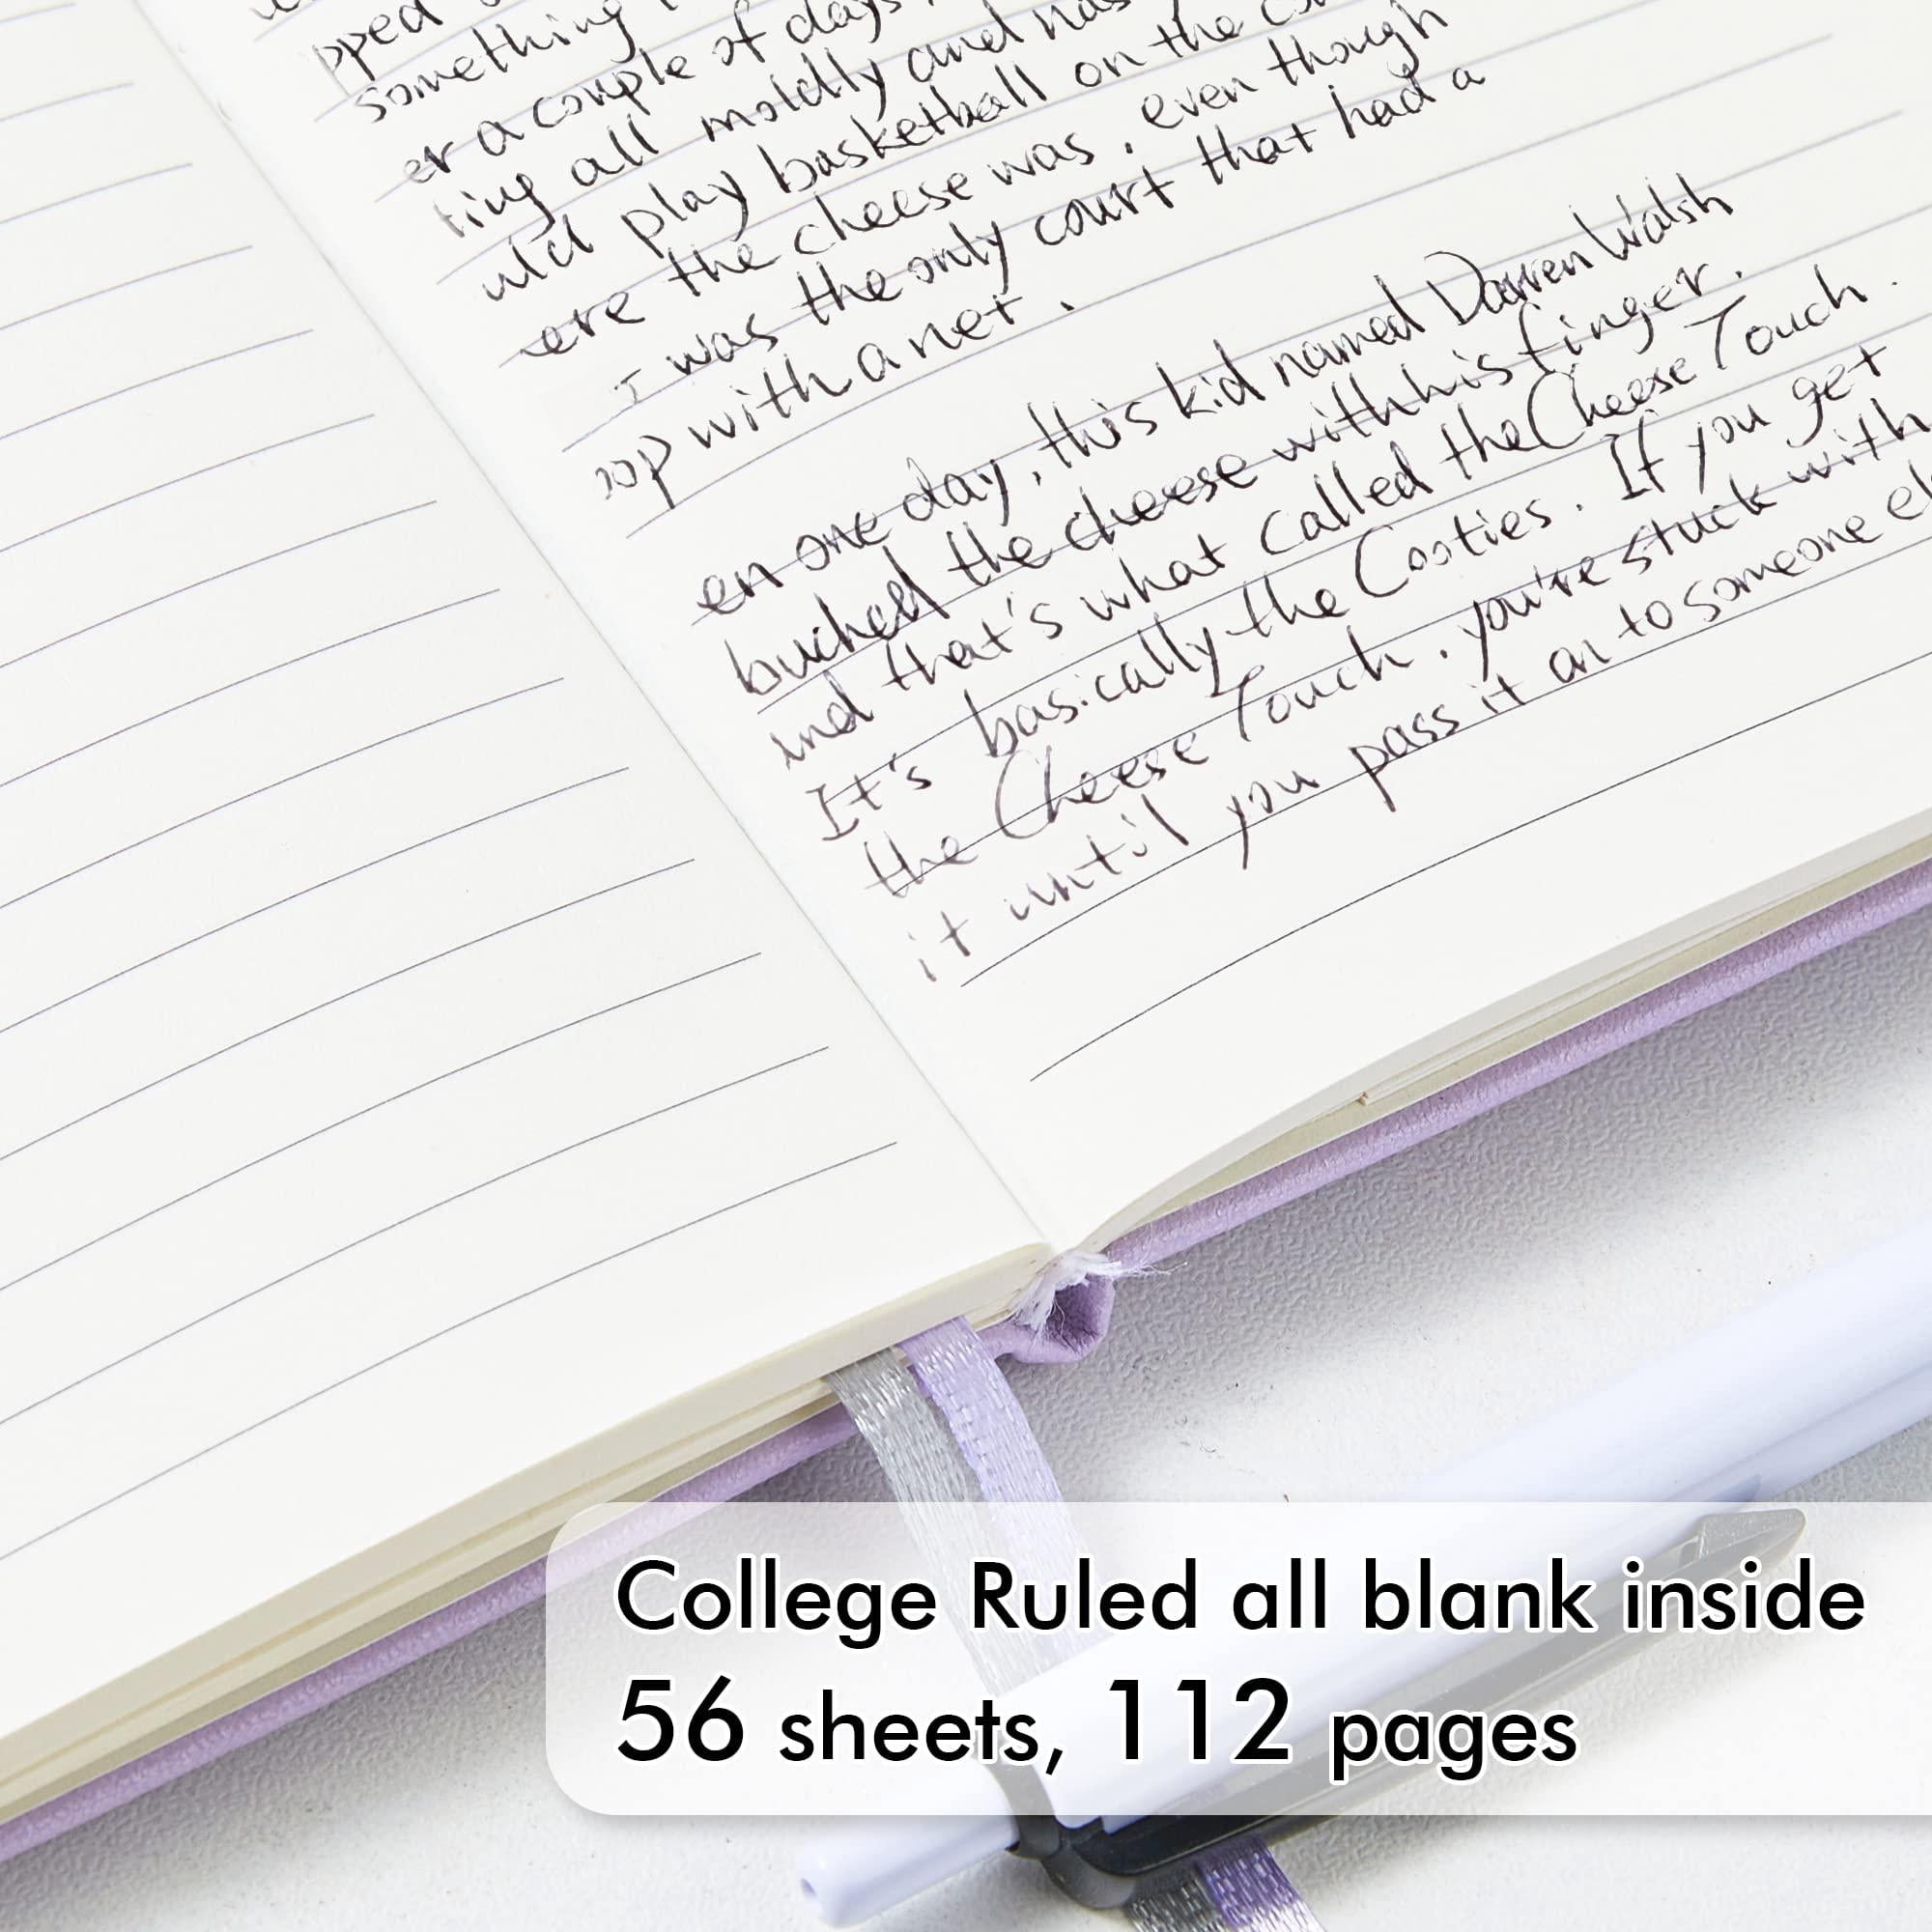 pped
something
er a couple of days
ting all moldly and nas
uld play basketball on the co
ere the cheese was, even though
I was the only court that had a
oop with a net.
en one day, this kid named Darren Walsh
buched the cheese with his finger.
ind that's what called the Cheese Touch.
It's basically the Cooties. If you get
the Cheese Touch, you're stuck with
it until you pass it on to someone el
College Ruled all blank inside
56 sheets, 112 pages